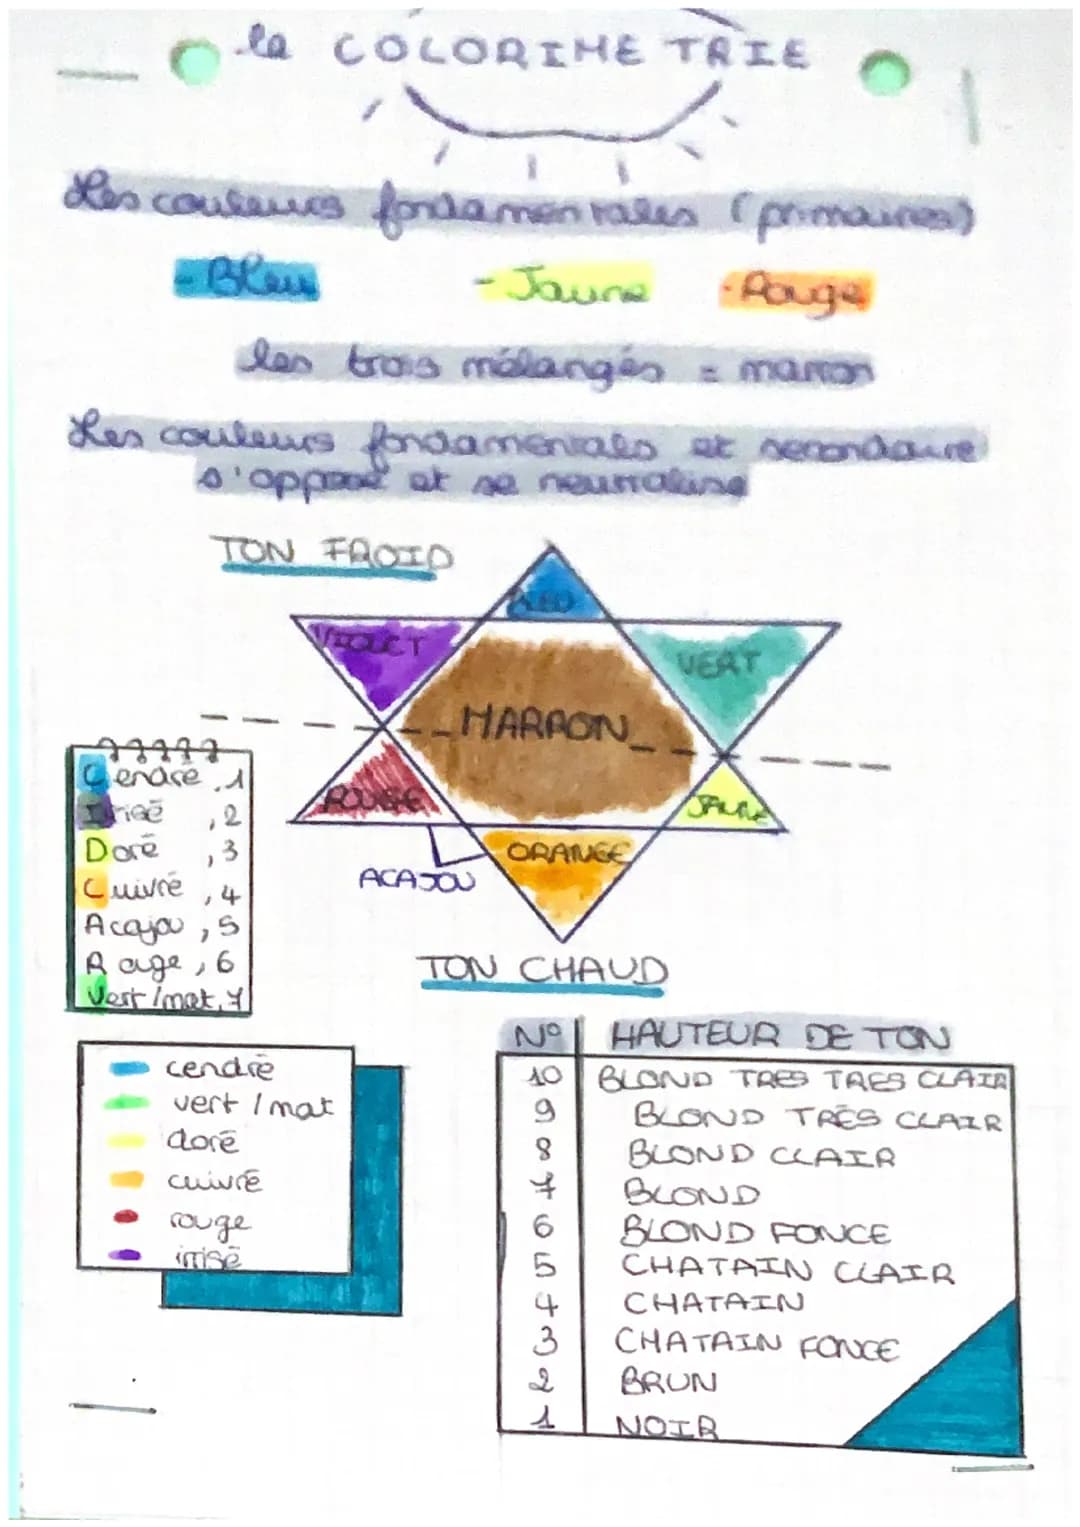 la COLORIMETRIE
Les couleurs fondamentales (primaires)
- Bleu - Jaune - Rouge
les trois mélangés = marron
Les couleurs fondamentals et secondaire
s'oppose et se neutralise
TON FROID
BLEU
VIOLET
VERT
MARRON
ROUGE
JAUNE
ORANGE
ACAJOU
TON CHAUD
Cendré ,1
Irisé ,2
Doré ,3
Cuivré ,4
Acajou ,5
Rouge ,6
Vert/mat,7
cendré
vert /mat
doré
cuivré
rouge
irisé
N° HAUTEUR DE TON
10 BLOND TRES TRES CLAIR
9 BLOND TRÉS CLAIR
8 BLOND CLAIR
7 BLOND
6 BLOND FONCE
5 CHATAIN CLAIR
4 CHATAIN
3 CHATAIN FONCE
2 BRUN
1 NOIR